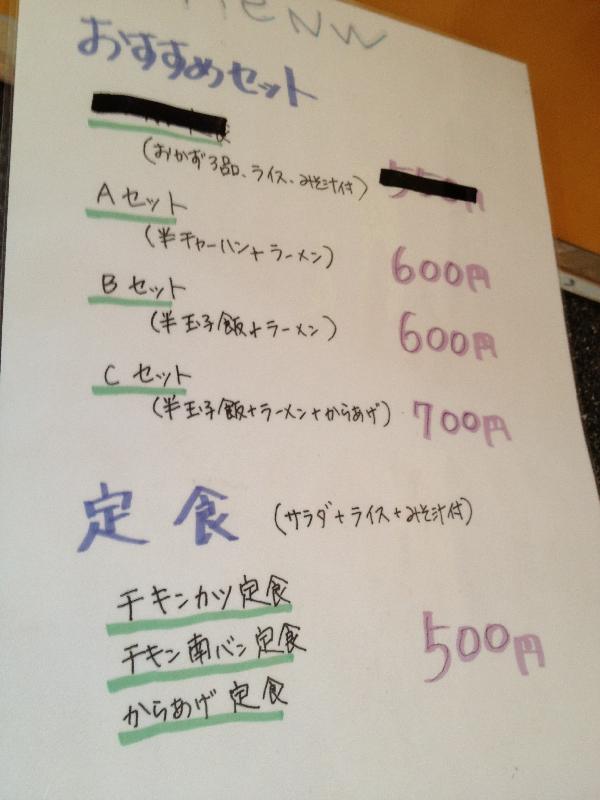 MENU
おすすめセット
(おかず3品、ライス、みそ汁付)
Aセット
(半チャーハン+ラーメン)
600円
Bセット
(半玉子飯+ラーメン)
600円
Cセット
(半玉子飯+ラーメン+からあげ)
700円
定食 (サラダ+ライス+みそ汁付)
チキンカツ定食
チキン南バン定食
500円
からあげ定食